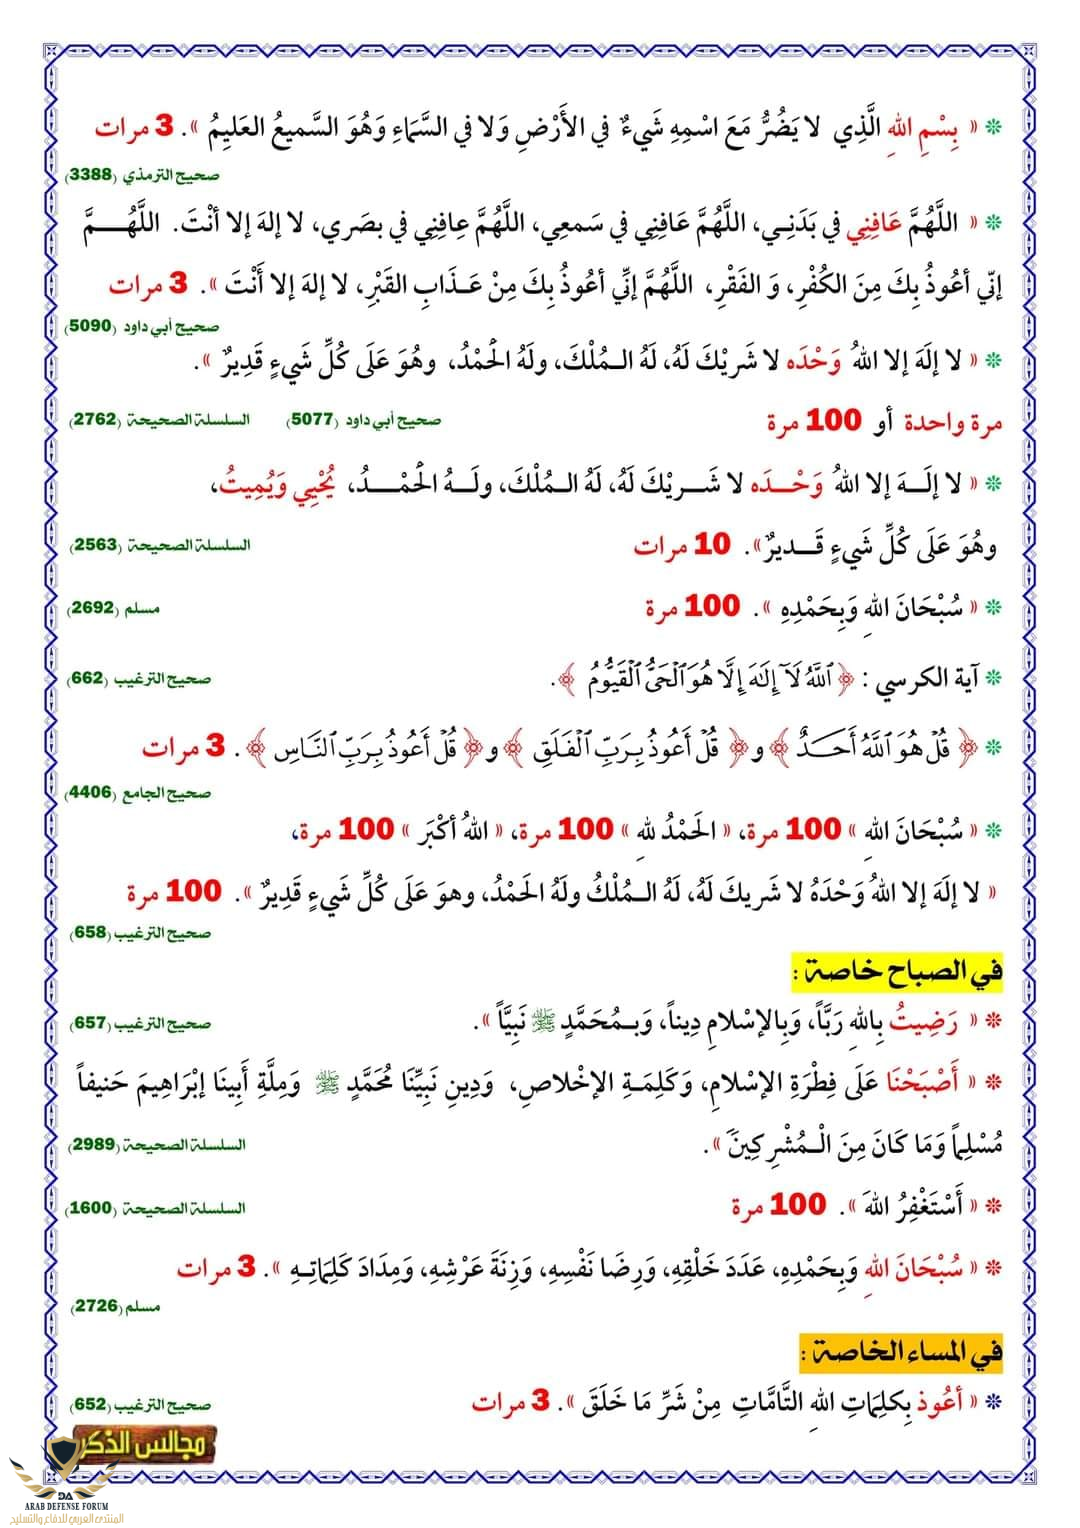 ❊ « بِسْمِ اللهِ الَّذِي لا يَضُرُّ مَعَ اسْمِهِ شَيءٌ في الأَرْضِ وَلا في السَّمَاءِ وَهُوَ السَّميعُ العَليمُ ». 3 مرات
صحيح الترمذي (3388)
❊ « اللَّهُمَّ عَافِنِي في بَدَنِـي، اللَّهُمَّ عَافِنِي في سَمعِي، اللَّهُمَّ عِافِنِي في بصَري، لا إلهَ إلا أنْتَ. اللَّهُـــمَّ
إنّي أعُوذُ بِكَ مِنَ الكُفْرِ، وَ الفَقْرِ، اللَّهُمَّ إنِّي أعُوذُ بِكَ مِنْ عَـذَابِ القَبْرِ، لا إلهَ إلا أَنْتَ ». 3 مرات
صحيح أبي داود (5090)
❊ « لا إلَهَ إلا اللهُ وَحْدَه لا شَريْكَ لَهُ، لَهُ الـمُلْكَ، ولَهُ الحَمْدُ، وهُوَ عَلَى كُلِّ شَيءٍ قَدِيرٌ ».
مرة واحدة أو 100 مرة صحيح أبي داود (5077) السلسلة الصحيحة (2762)
❊ « لا إلَــهَ إلا اللهُ وَحْــدَه لا شَــريْكَ لَهُ، لَهُ الـمُلْكَ، ولَــهُ الحَمْــدُ، يُحْيِي وَيُمِيتُ،
وهُوَ عَلَى كُلِّ شَيءٍ قَــديرٌ». 10 مرات السلسلة الصحيحة (2563)
❊ « سُبْحَانَ اللهِ وَبِحَمْدِهِ ». 100 مرة مسلم (2692)
❊ آية الكرسي : ﴿ ٱللَّهُ لَآ إِلَٰهَ إِلَّا هُوَ ٱلْحَىُّ ٱلْقَيُّومُ ﴾. صحيح الترغيب (662)
❊ ﴿ قُلْ هُوَ ٱللَّهُ أَحَـــدٌ ﴾ و﴿ قُلْ أَعُوذُ بِرَبِّ ٱلْفَلَقِ ﴾ و﴿ قُلْ أَعُوذُ بِرَبِّ ٱلنَّاسِ ﴾ . 3 مرات
صحيح الجامع (4406)
❊ « سُبْحَانَ اللهِ » 100 مرة، « الحَمْدُ للهِ » 100 مرة، « اللهُ أكْبَر » 100 مرة،
« لا إلَهَ إلا اللهُ وَحْدَهُ لا شَريكَ لَهُ، لَهُ الـمُلْكُ ولَهُ الحَمْدُ، وهوَ عَلَى كُلِّ شَيءٍ قَدِيرٌ ». 100 مرة
صحيح الترغيب (658)
في الصباح خاصة :
❊ « رَضِيتُ بِاللهِ رَبَّاً، وَبِالإسْلامِ دِيناً، وَبـمُحَمَّدٍ ﷺ نَبِيَّاً ». صحيح الترغيب (657)
❊ « أَصْبَحْنَا عَلَى فِطْرَةِ الإسْلامِ، وَكَلِمَـةِ الإخْلاصِ، وَدِينِ نَبِيِّنَا مُحَمَّدٍ ﷺ وَمِلَّةِ أَبِينَا إبْرَاهِيمَ حَنيفاً
مُسْلِماً وَمَا كَانَ مِنَ الْـمُشْرِكِينَ ». السلسلة الصحيحة (2989)
❊ « أَسْتَغْفِرُ اللهَ ». 100 مرة السلسلة الصحيحة (1600)
❊ « سُبْحَانَ اللهِ وَبِحَمْدِهِ، عَدَدَ خَلْقِهِ، وَرِضَا نَفْسِهِ، وَزِنَةَ عَرْشِهِ، وَمِدَادَ كَلِمَاتِـهِ ». 3 مرات
مسلم (2726)
في المساء الخاصة :
❊ « أعُوذ بِكلِمَاتِ اللهِ التَّامَّاتِ مِنْ شَرِّ مَا خَلَقَ ». 3 مرات صحيح الترغيب (652)
مجالس الذكر
ARAB DEFENSE FORUM
المنتدى العربي للدفاع والتسليح